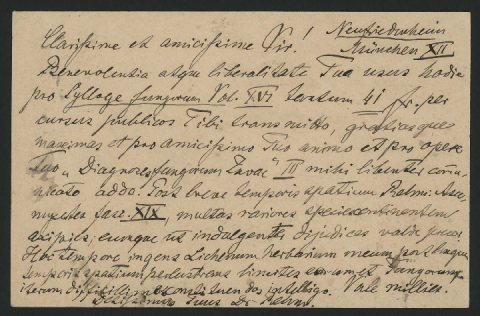 Neufriedenheim
Clarissime et amicissime Vir! München XII
Benevolentia atque liberalitate Tua usus hodie
pro Sylloge fungorum Vol. XVI tantum 41 fr. per
cursus publicos Tibi transmitto, gratiasque
maximas et pro amicissimo Tuo animo et pro opere
Tuo „Diagnoses fungorum Javae" III mihi libenter commu
nicato addo. Post breve temporis spatium Rehm: Asco
myceten fasc. XIX, multas rariores species continentem
accipies, eumque ut indulgenter dijudices valde precor.
Hoc tempore ingens Lichenum herbarium meum post longum
temporis spatium perlustrans limites eorum et fungorum
iterum difficillime constituendos intelligo. Vale millies.
Tuus Dr Rehm.